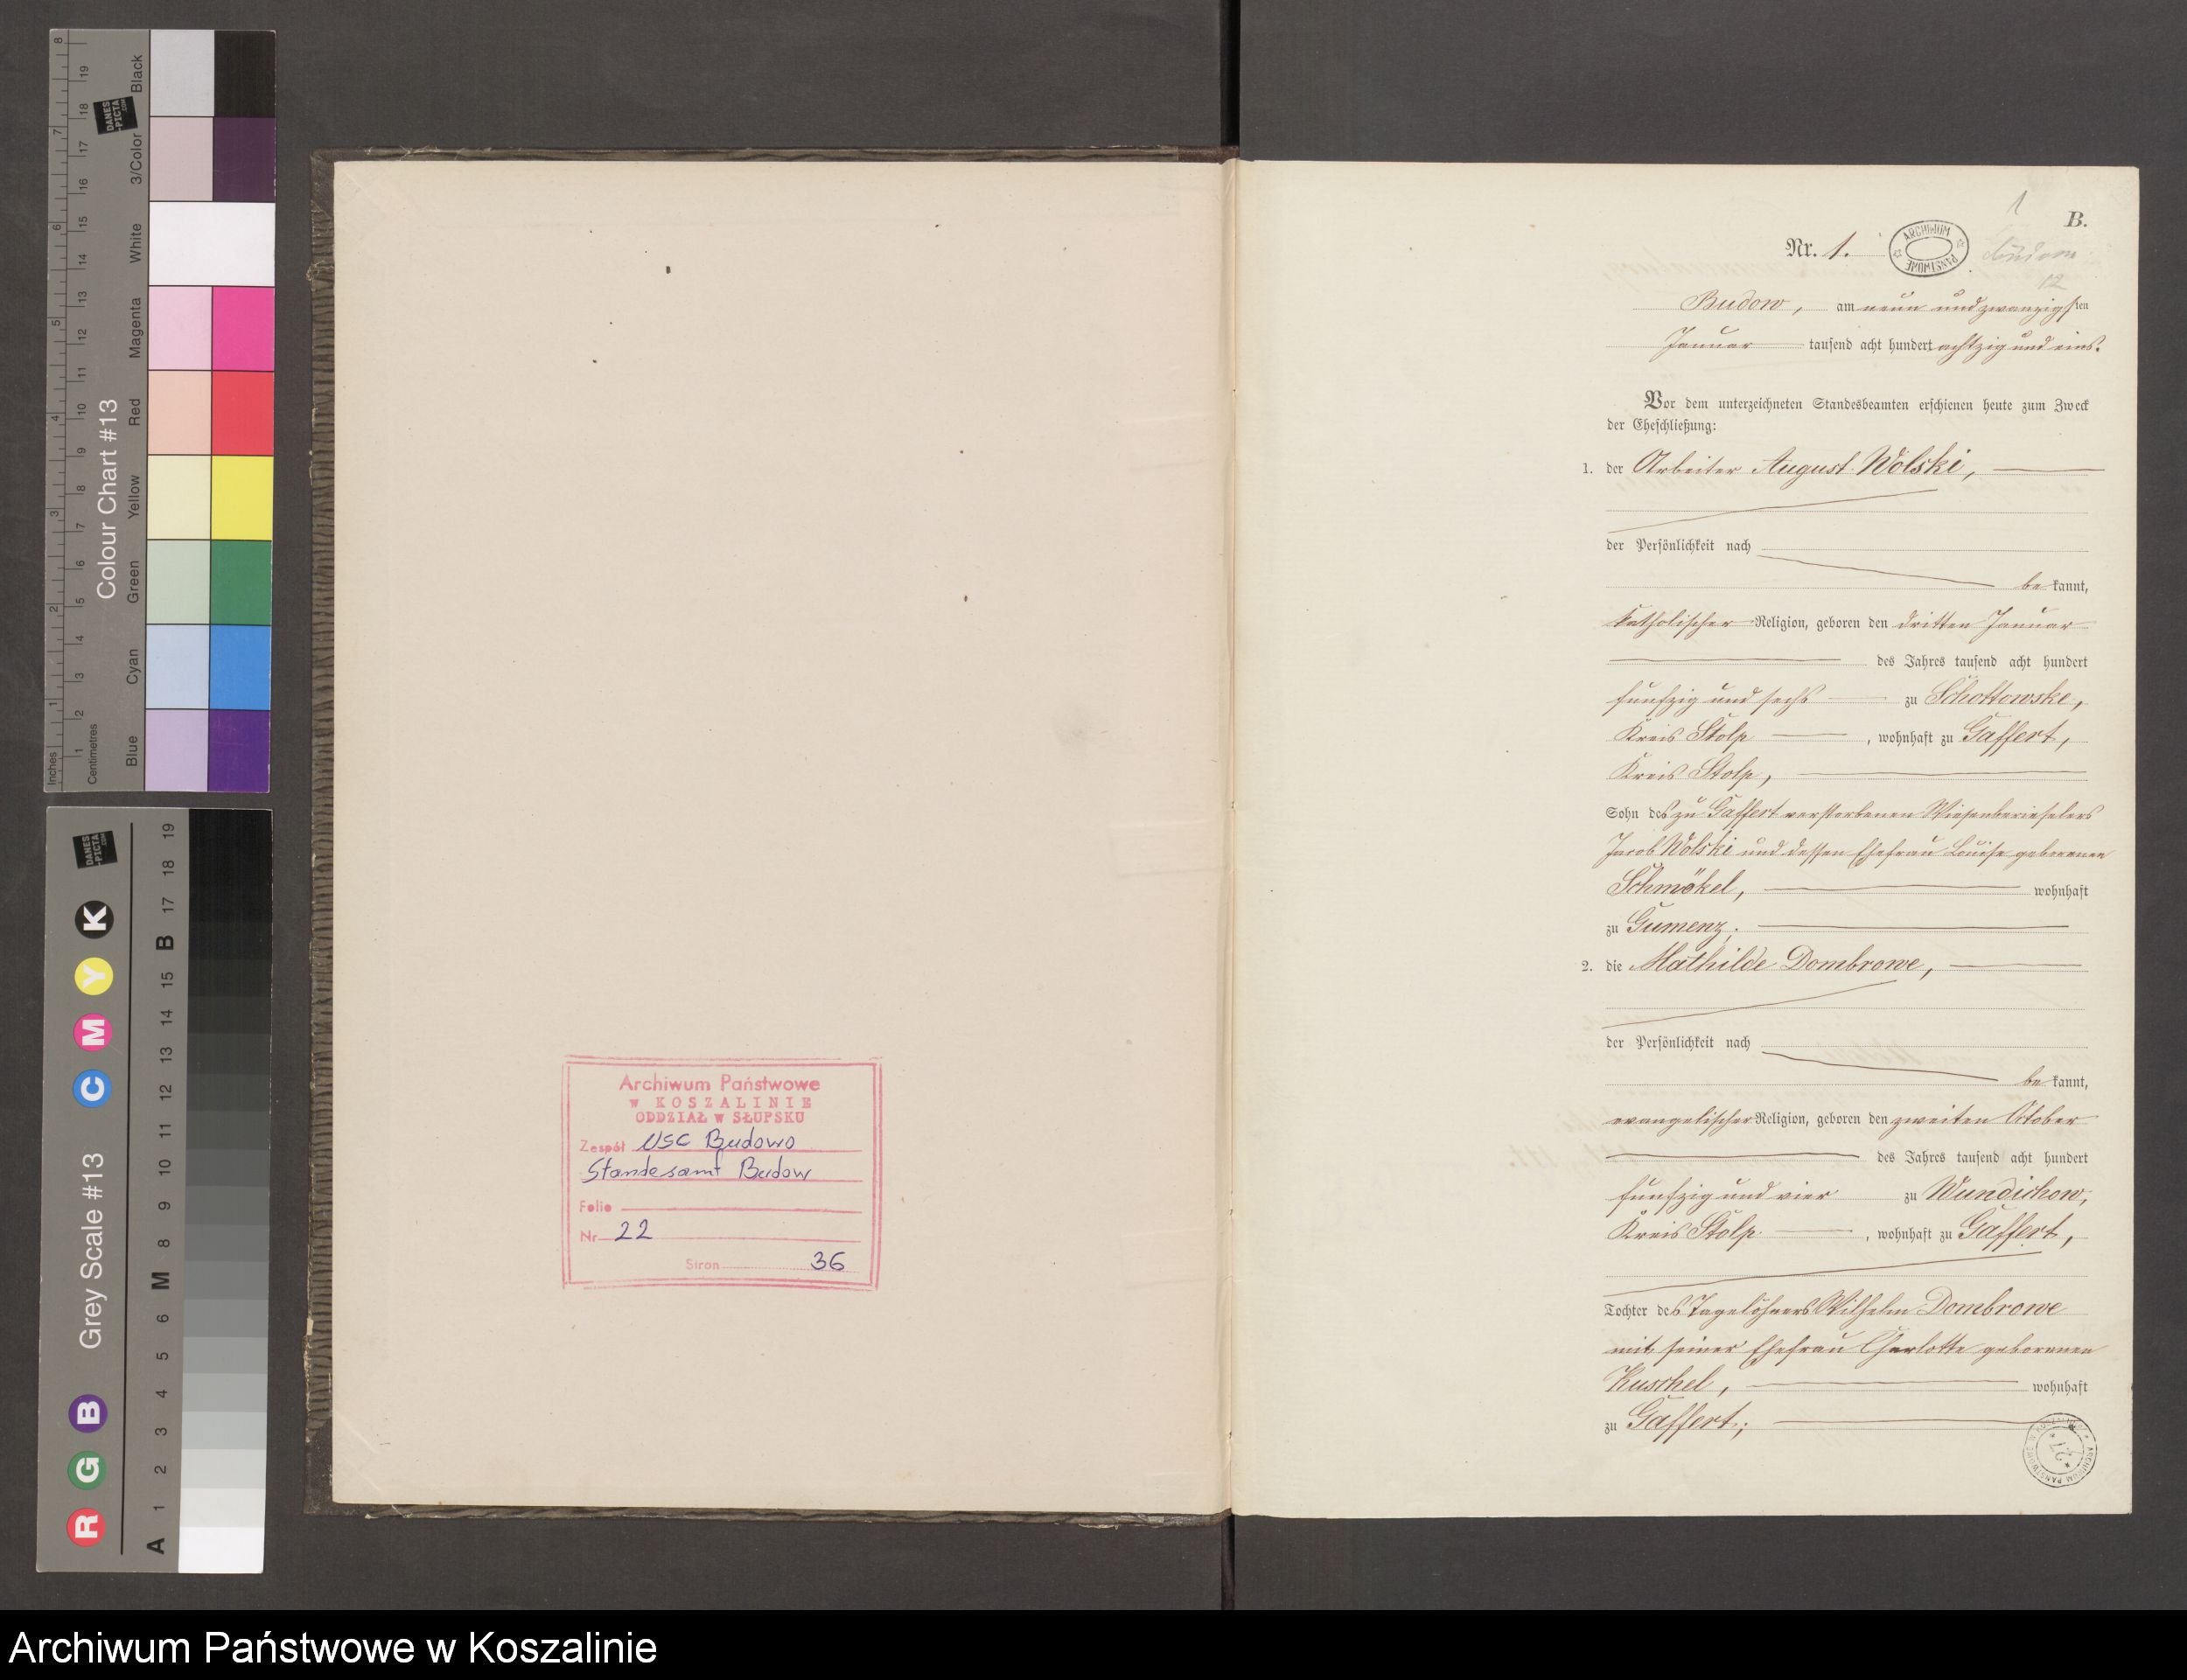 Archiwum Państwowe
w KOSZALINIE
ODDZIAŁ w SŁUPSKU
Zespół USC Budowo
Standesamt Budow
Folio
Nr 22
Stron 36
1
B.
Nr. 1.
ARCHIWUM PAŃSTWOWE
Budow
12
Budow, am neun und zwanzigsten
Januar tausend acht hundert achtzig und eins.
Vor dem unterzeichneten Standesbeamten erschienen heute zum Zweck
der Eheschließung:
1. der Arbeiter August Wolski,
der Persönlichkeit nach
be kannt,
katholischer Religion, geboren den dritten Januar
des Jahres tausend acht hundert
funfzig und sechs zu Schottowske,
Kreis Stolp, wohnhaft zu Gaffert,
Kreis Stolp,
Sohn des zu Gaffert verstorbenen Wiesenberieselers
Jacob Wolski und dessen Ehefrau Louise geborenen
Schmökel, wohnhaft
zu Gumenz.
2. die Mathilde Dombrowe,
der Persönlichkeit nach
be kannt,
evangelischer Religion, geboren den zweiten October
des Jahres tausend acht hundert
funfzig und vier zu Wundichow,
Kreis Stolp, wohnhaft zu Gaffert,
Tochter des Tagelöhners Wilhelm Dombrowe
mit seiner Ehefrau Charlotte geborenen
Kuschel, wohnhaft
zu Gaffert;
Colour Chart #13
Inches
Centimetres
Blue
Cyan
Green
Yellow
Red
Magenta
White
3/Color
Black
DANES-PICTA.COM
Grey Scale #13
R G B C M Y K
A 1 2 3 4 5 6 M 8 9 10 11 12 13 14 15 B 17 18 19
Archiwum Państwowe w Koszalinie